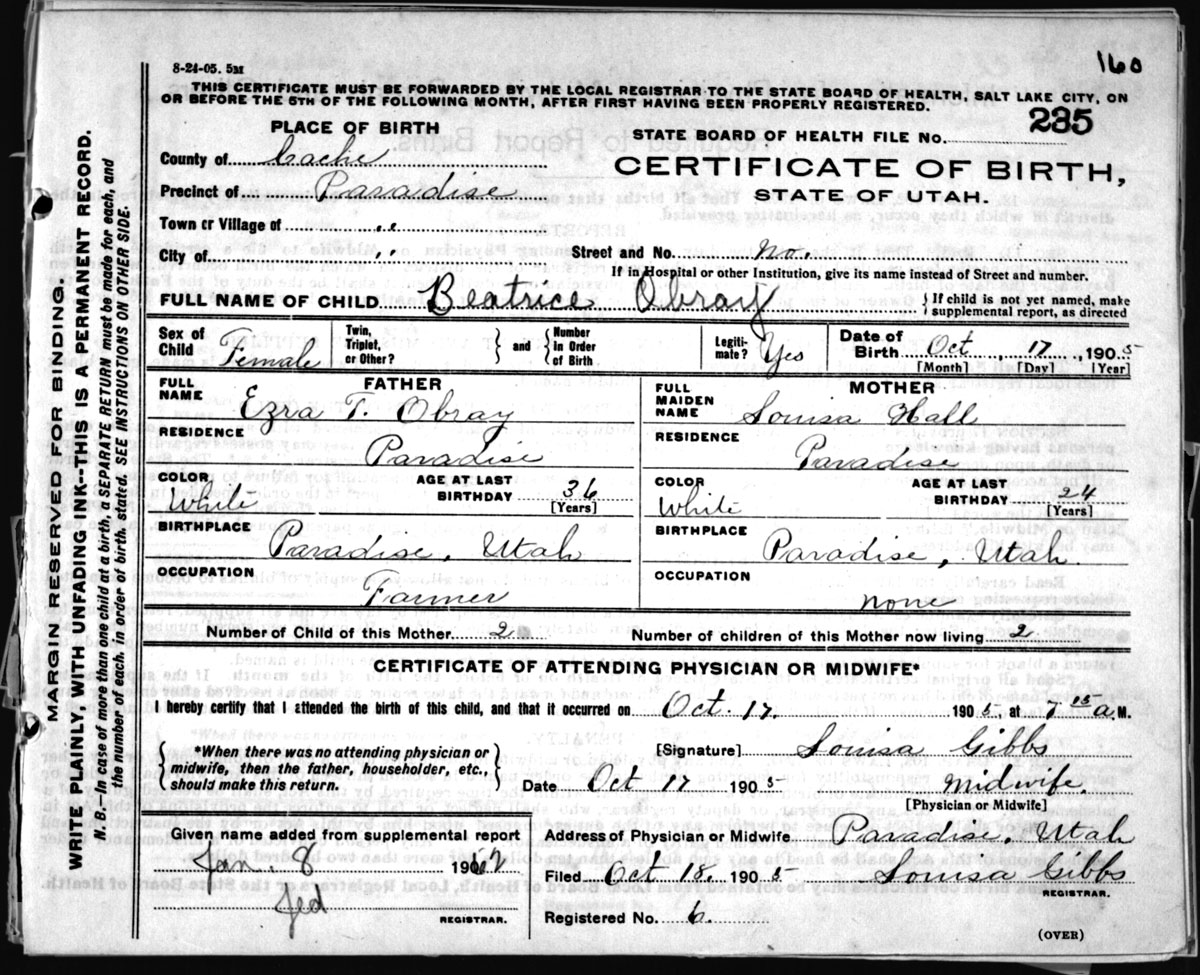 160
8-24-05. 5M
THIS CERTIFICATE MUST BE FORWARDED BY THE LOCAL REGISTRAR TO THE STATE BOARD OF HEALTH, SALT LAKE CITY, ON
OR BEFORE THE 5TH OF THE FOLLOWING MONTH, AFTER FIRST HAVING BEEN PROPERLY REGISTERED.
PLACE OF BIRTH
STATE BOARD OF HEALTH FILE No. 235
County of Cache
CERTIFICATE OF BIRTH,
Precinct of Paradise
STATE OF UTAH.
Town or Village of ,,
City of ,, Street and No. No.
If in Hospital or other Institution, give its name instead of Street and number.
FULL NAME OF CHILD Beatrice Obray { If child is not yet named, make supplemental report, as directed
Sex of Child Female Twin, Triplet, or Other? } and { Number in Order of Birth Legiti-mate? Yes Date of Birth Oct, 17, 1905
[Month] [Day] [Year]
FATHER
FULL NAME Ezra T. Obray
RESIDENCE
Paradise
COLOR White AGE AT LAST BIRTHDAY 36
[Years]
BIRTHPLACE
Paradise, Utah
OCCUPATION
Farmer
MOTHER
FULL MAIDEN NAME Louisa Hall
RESIDENCE
Paradise
COLOR White AGE AT LAST BIRTHDAY 24
[Years]
BIRTHPLACE
Paradise, Utah.
OCCUPATION
none
Number of Child of this Mother 2 Number of children of this Mother now living 2
CERTIFICATE OF ATTENDING PHYSICIAN OR MIDWIFE*
I hereby certify that I attended the birth of this child, and that it occurred on Oct. 17. 1905, at 7 15 a.M.
{ *When there was no attending physician or midwife, then the father, householder, etc., should make this return. }
[Signature] Louisa Gibbs
Date Oct 17 1905 Midwife.
[Physician or Midwife]
Given name added from supplemental report
Jan. 8 1962
Jed
REGISTRAR.
Address of Physician or Midwife Paradise, Utah
Filed Oct 18. 1905 Louisa Gibbs
REGISTRAR.
Registered No. 6.
(OVER)
MARGIN RESERVED FOR BINDING.
WRITE PLAINLY, WITH UNFADING INK--THIS IS A PERMANENT RECORD.
N. B.—In case of more than one child at a birth, a SEPARATE RETURN must be made for each, and
the number of each, in order of birth, stated. SEE INSTRUCTIONS ON OTHER SIDE.